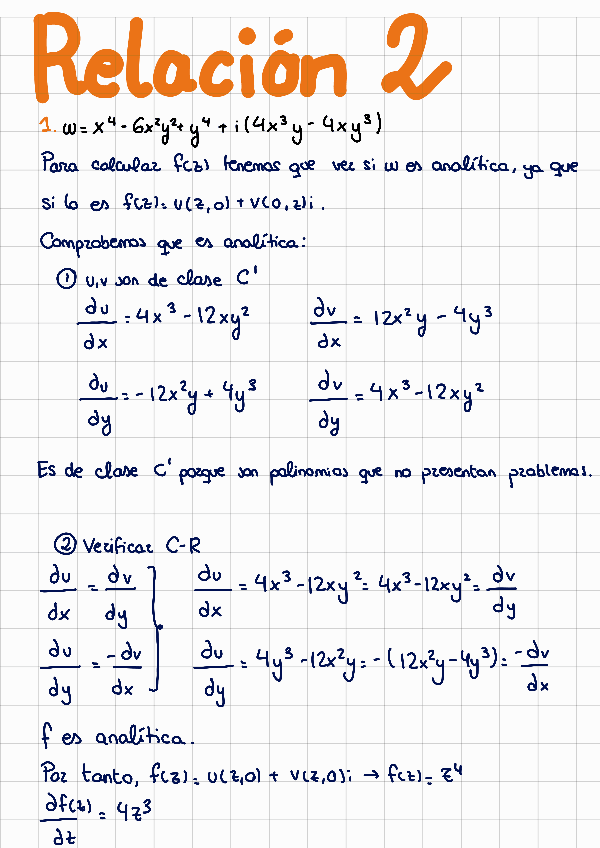 Relación 2
1. w = x⁴ - 6x²y² + y⁴ + i(4x³y - 4xy³)
Para calcular f(z) tenemos que ver si w es analítica, ya que
si lo es f(z) = u(z,0) + v(0,z)i.
Comprobemos que es analítica:
① u,v son de clase C'
du/dx = 4x³ - 12xy² dv/dx = 12x²y - 4y³
du/dy = -12x²y + 4y³ dv/dy = 4x³ - 12xy²
Es de clase C' porque son polinomios que no presentan problemas.
② Verificar C-R
du/dx = dv/dy du/dx = 4x³ - 12xy² = 4x³ - 12xy² = dv/dy
du/dy = -dv/dx du/dy = 4y³ - 12x²y = -(12x²y - 4y³) = -dv/dx
f es analítica.
Por tanto, f(z) = u(z,0) + v(z,0)i → f(z) = z⁴
∂f(z)/∂z = 4z³